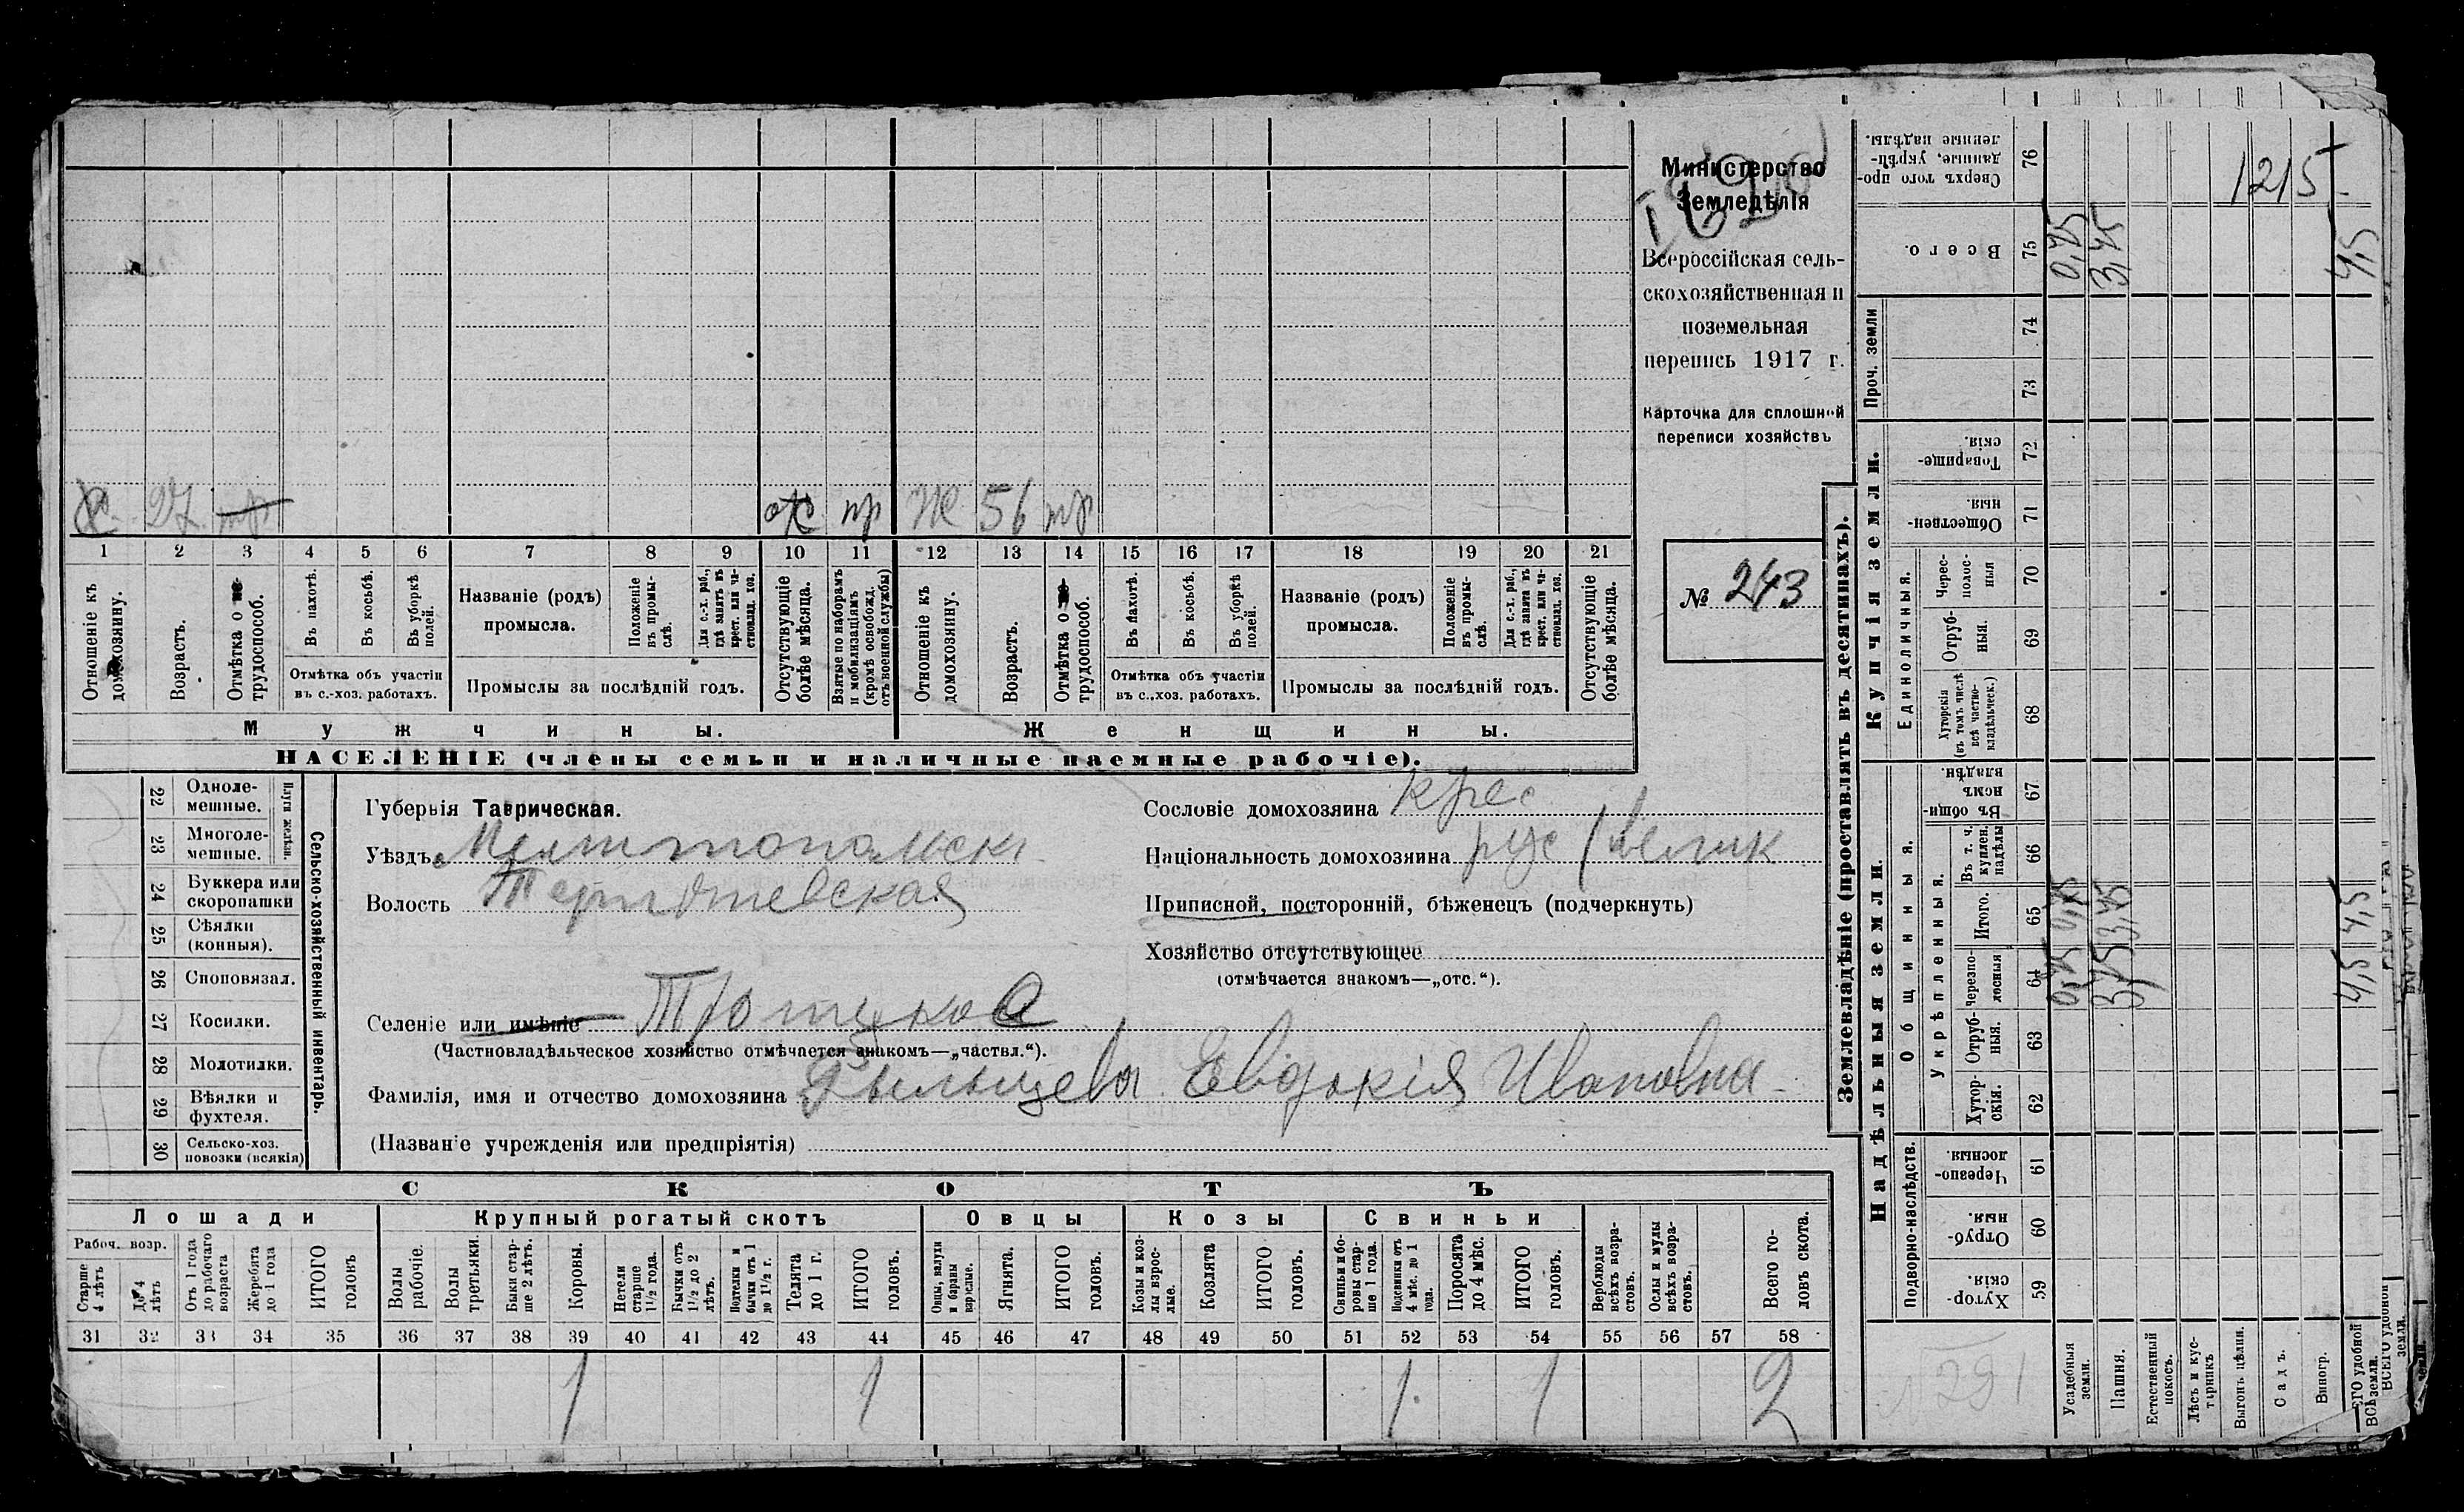 Министерство
Земледѣлія
Всероссійская сель-
скохозяйственная и
поземельная
перепись 1917 г.
Карточка для сплошной
переписи хозяйствъ
№ 243
х 27 тр
отс пр Ж 56 тр
1 2 3 4 5 6 7 8 9 10 11 12 13 14 15 16 17 18 19 20 21
Отношеніе къ домохозяину.
Возрастъ.
Отмѣтка о не-трудоспособ.
Въ пахотѣ.
Въ косьбѣ.
Въ уборкѣ полей.
Отмѣтка объ участіи
въ с.-хоз. работахъ.
Названіе (родъ)
промысла.
Положеніе въ промы-слѣ.
Для с.-х. раб., гдѣ занятъ въ крест. или ча-стновлад. хоз.
Промыслы за послѣдній годъ.
Отсутствующіе болѣе мѣсяца.
Взятые по наборамъ и мобилизаціямъ (кромѣ освобожд. отъ военной службы)
Отношеніе къ домохозяину.
Возрастъ.
Отмѣтка о не-трудоспособ.
Въ пахотѣ.
Въ косьбѣ.
Въ уборкѣ полей.
Отмѣтка объ участіи
въ с.-хоз. работахъ.
Названіе (родъ)
промысла.
Положеніе въ промы-слѣ.
Для с.-х. раб., гдѣ занята въ крест. или ча-стновлад. хоз.
Промыслы за послѣдній годъ.
Отсутствующіе болѣе мѣсяца.
Мужчины.
Женщины.
НАСЕЛЕНІЕ (члены семьи и наличные наемные рабочіе).
22 Одноле-мешные.
23 Многоле-мешные.
Плуги желѣзн.
24 Буккера или скоропашки
25 Сѣялки (конныя).
26 Сноповязал.
27 Косилки.
28 Молотилки.
29 Вѣялки и фухтеля.
30 Сельско-хоз. повозки (всякія)
Сельско-хозяйственный инвентарь.
Губернія Таврическая.
Уѣздъ Мелитопольскі
Волость
Селеніе или имѣніе Троицкое
(Частновладѣльческое хозяйство отмѣчается знакомъ—„частвл.“).
Фамилія, имя и отчество домохозяина Рыльцева Евдокія Ивановна
(Названіе учрежденія или предпріятія)
Сословіе домохозяина крес
Національность домохозяина рус / велик
Приписной, посторонній, бѣженецъ (подчеркнуть)
Хозяйство отсутствующее
(отмѣчается знакомъ—„отс.“).
СКОТЪ
Лошади
Крупный рогатый скотъ
Овцы
Козы
Свиньи
Рабоч. возр.
Старше 4 лѣтъ
До 4 лѣтъ
Отъ 1 года до рабочаго возраста
Жеребята до 1 года
ИТОГО головъ
Волы рабочіе.
Волы третьяки.
Быки стар-ше 2 лѣтъ.
Коровы.
Нетели старше 1½ года.
Бычки отъ 1½ до 2 лѣтъ.
Подтелки и бычки отъ 1 до 1½ г.
Телята до 1 г.
ИТОГО головъ.
Овцы, валухи и бараны взрослые.
Ягнята.
ИТОГО головъ.
Козы и коз-лы взрос-лые.
Козлята
ИТОГО головъ.
Свиньи и бо-ровы стар-ше 1 года.
Подсвинки отъ 4 мѣс. до 1 года.
Поросята до 4 мѣс.
ИТОГО головъ.
Верблюды всѣхъ возра-стовъ.
Ослы и мулы всѣхъ возра-стовъ.
Всего го-ловъ скота.
31 32 33 34 35 36 37 38 39 40 41 42 43 44 45 46 47 48 49 50 51 52 53 54 55 56 57 58
1 1 1 1 2
Землевладѣніе (проставлять въ десятинахъ).
Купчія земли.
Надѣльныя земли.
Сверхъ того про-данные, укрѣп-ленные надѣлы. 76
Всего. 75
Проч. земли
74
73
Товарище-скія. 72
Обществен-ныя. 71
Единоличныя.
Черес-полос-ныя 70
Отруб-ныя. 69
Хуторскія (въ томъ числѣ всѣ частно-владѣльческ.) 68
Общинныя.
Въ общи-номъ владѣн. 67
Укрѣпленныя.
Въ т. ч. куплен. надѣлы 66
Итого. 65
Черезпо-лосныя 64
Отруб-ныя. 63
Хутор-скія. 62
Подворно-наслѣдств.
Черезпо-лосныя. 61
Отруб-ныя. 60
Хутор-скія. 59
Усадебныя земли.
Пашня.
Естественный покосъ.
Лѣсъ и кус-тарникъ
Выгонъ цѣлин.
Садъ.
Виногр.
ВСЕГО удобной земли.
0,75 3,75 4,5
0,75 3,75 4,5
0,75 3,75 4,5
1215
291